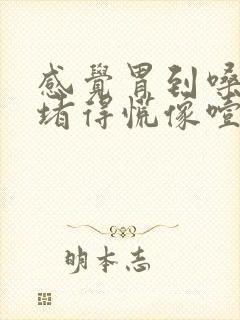 感覺胃到嗓
堵得慌像噎
明本志